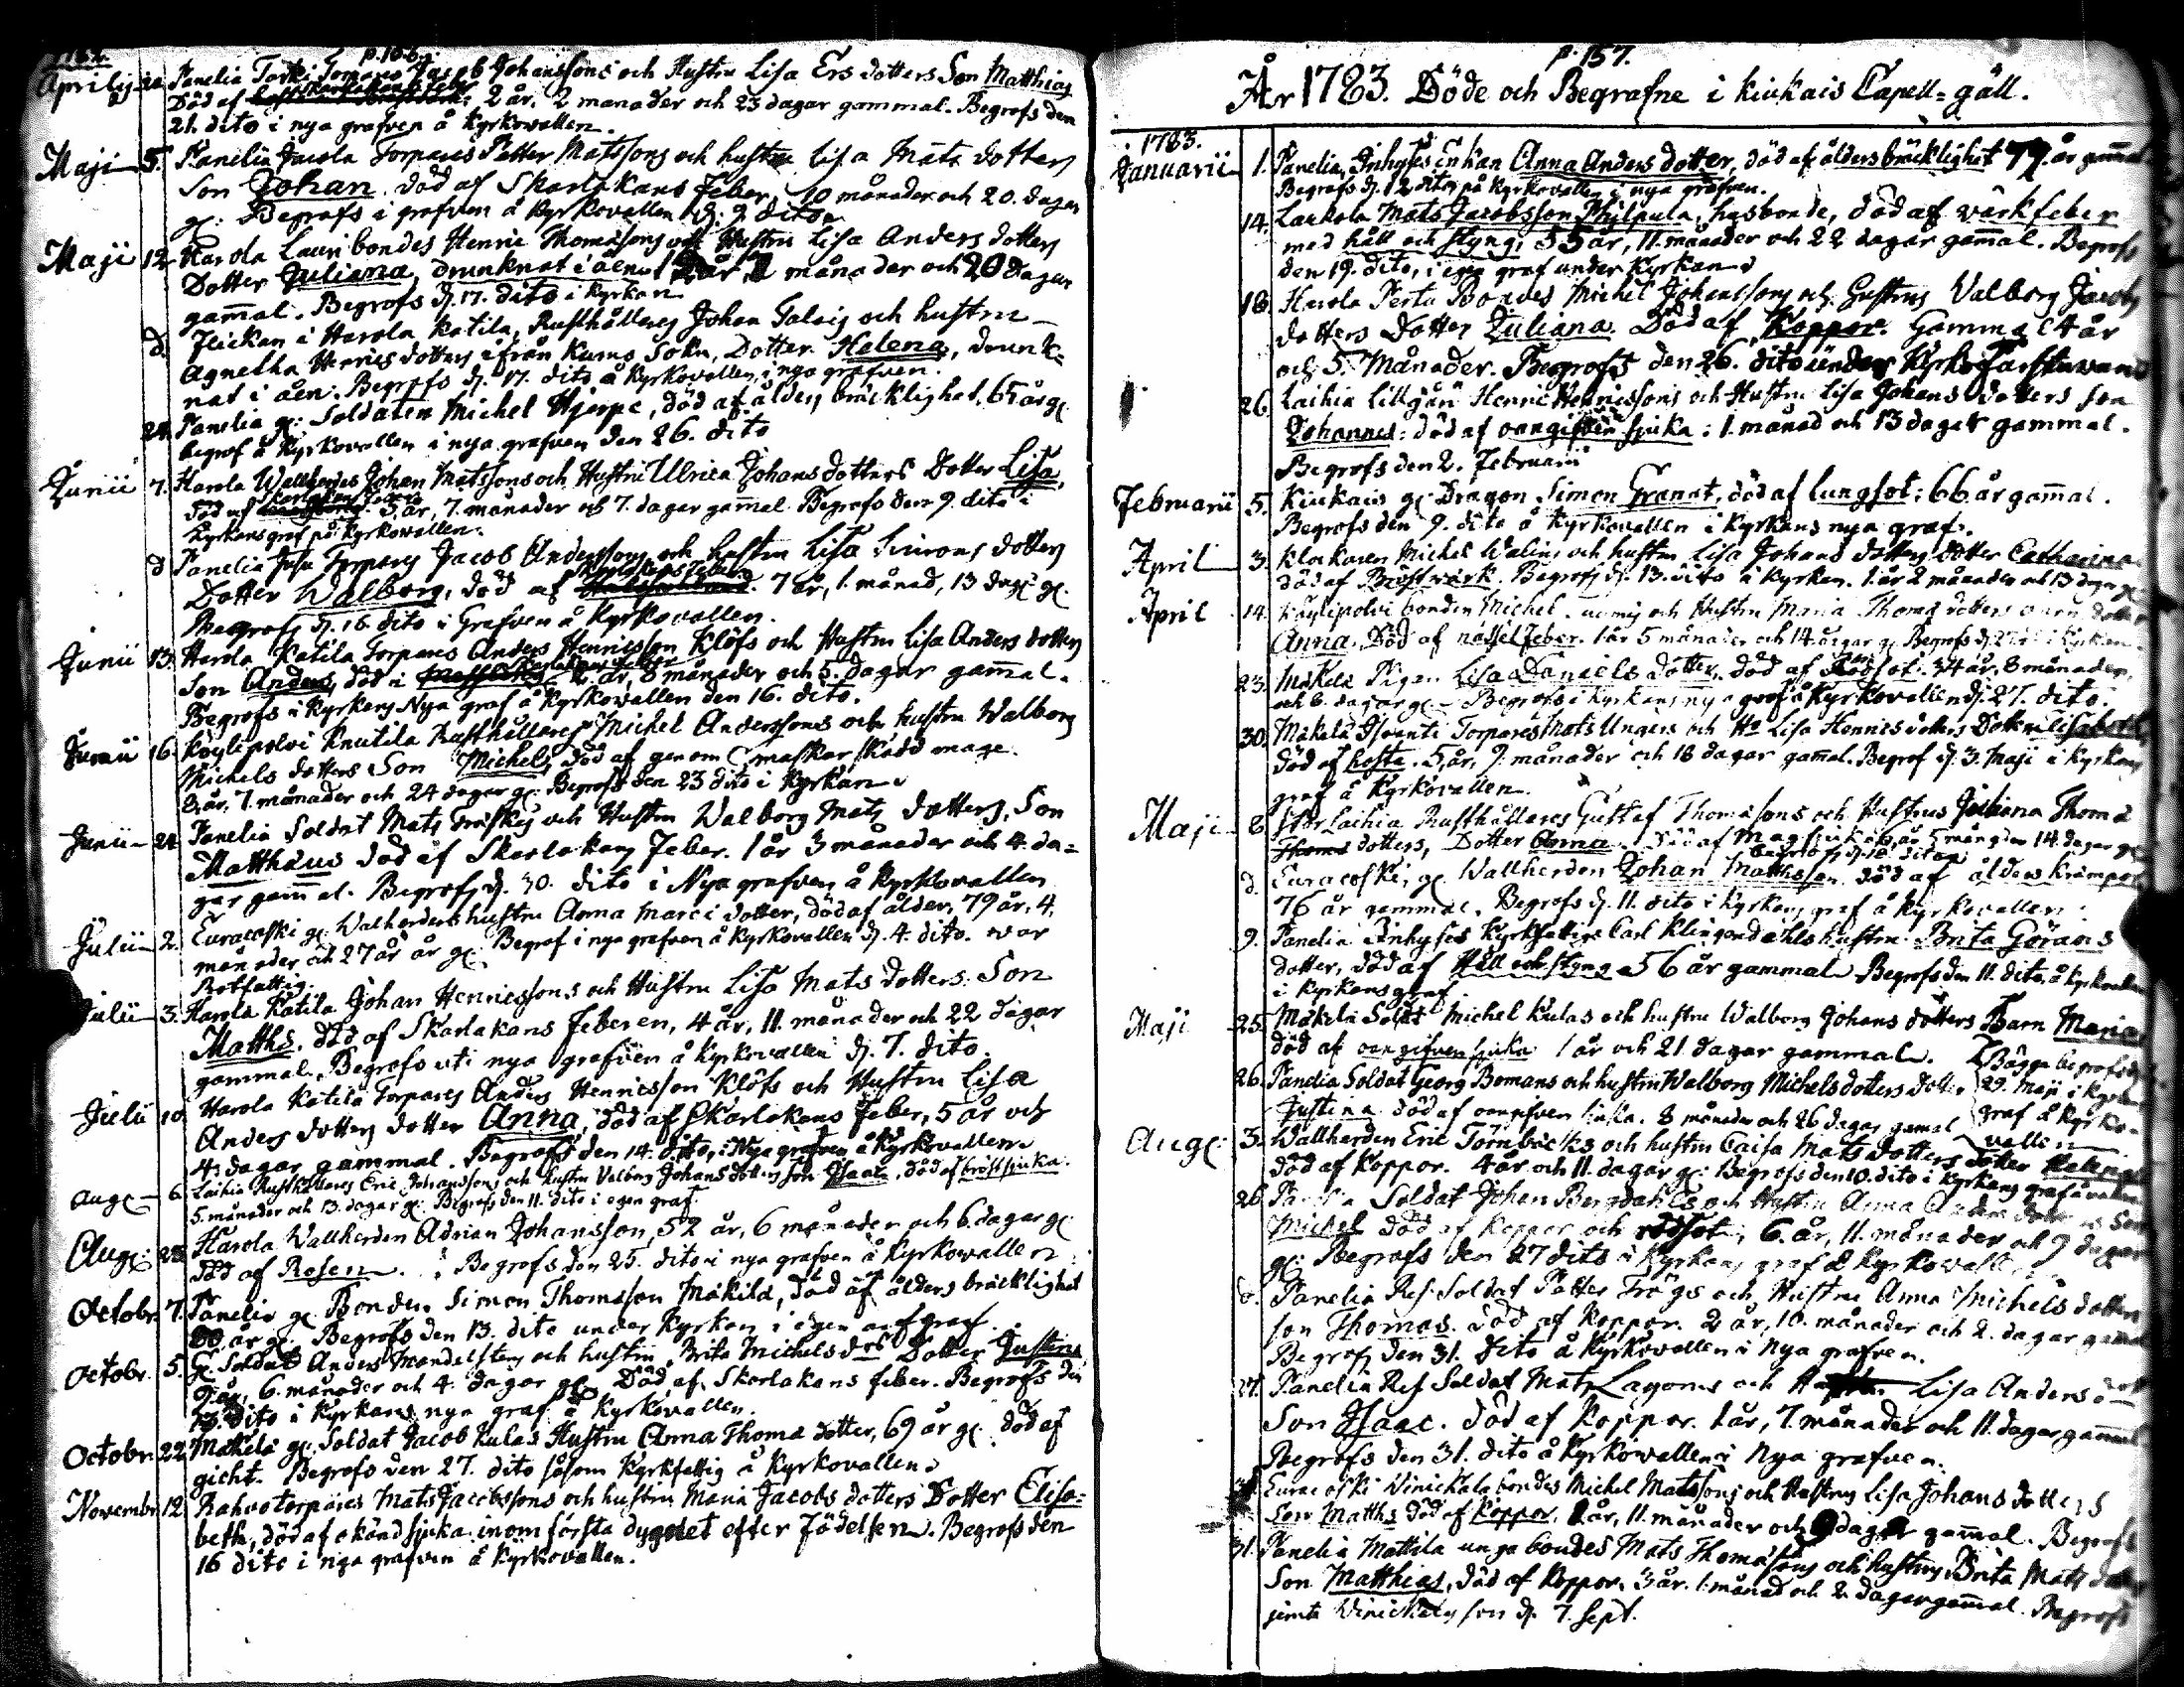 p. 156.
1782.
Aprilis Panelia Torki Torpares Jacob Johanssons och Hustru Lisa Ers dotters Son Matthias
Död af Skarlakans feber 2 år, 2 månader och 23 dagar gammal. Begrofs den
21. dito i nya grafven å Kyrkovallen.
Maji 5. Panelia Jacola Torpares Petter Matssons och hustru Lisa Mats dotters
Son Johan. död af Skarlakans feber, 10 månader och 20. dagar
gl: Begrofs i grafven å Kyrkovallen d. 9 dito
Maji 12. Harola Lauri bondes Henric Thomassons och Hustru Lisa Anders dotters
Dotter Juliana, drunknat i åen månader och 20 dagar
gam̄al. Begrofs d. 17. dito i Kyrkan
d. Flickan i Harola Katila, Rusthållares Johan Taleig och hustru
Agnetha Henrics dotters ifrån Kumo Sokn, Dotter Helena, drunk-
nat i åen. Begrofs d. 17. dito å Kyrkovallen i nya grafven.
24. Panelia gl: Soldaten Michel Hjerpe, död af ålders bräcklighet, 65 år gl:
begrof å Kyrkovallen i nya grafven den 26. dito
Junii 7. Harola Wallherdes Johan Matssons och Hustru Ulrica Johans dotters Dotter Lisa,
död af Skarlakans feber 3 år, 7. månader och 7. dagar gam̄al Begrofs den 9. dito i
Kyrkans graf på Kyrkovallen.
d Panelia Juho Torpares Jacob Anderssons och hustru Lisa Simons dotters
Dotter Walborg, död af Skarlakans feber 7 år, 1. månad, 13 dag: gl:
Begrofs d. 16 dito i Grafven å Kyrkovallen.
Junii 13. Harola Katila Torpares Anders Henricsson Klöfs och Hustru Lisa Anders dotters
Son Anders, död i Skarlakans feber 2. år, 8 månader och 5. dagar gam̄al.
Begrofs i Kyrkans Nya graf å Kyrkovallen den 16. dito.
Junii 16. Köylipolvi Knutila Rusthållares Michel Anderssons och hustru Walborg
Michels dotters Son Michel, död af genom maskar skadd mage.
8 år, 7. månader och 24 dagar gl: Begrofs den 23 dito i Kyrkan.
Junii 24 Panelia Soldat Mats Friskes och Hustru Walborg Mats dotters, Son
Matthæus död af Skarlakans feber. 1 år 3 månader och 4. da-
gar gam̄al. Begrofs d. 30. dito i Nya grafven å Kyrkovallen
Julii 2. Euracoski gl: Walherdens hustru Anna Marci dotter, död af ålder, 79 år, 4.
månader och 27 år år gl: Begrof i nya grafven å Kyrkovallen d. 4. dito. war
Rotfattig.
Julii 3. Harola Katila Johan Henricssons och Hustru Lisa Mats dotters. Son
Matths. död af Skarlakans feberen, 4 år, 11. månader och 22 dagar
gammal. Begrofs uti nya grafven å Kyrkovallen d. 7. dito.
Julii 10 Harola Katila Torpares Anders Henricsson Klöfs och Hustru Lisa
Anders dotters dotter Anna, död af Skarlakans feber, 5 år och
4. dagar gammal. Begrofs den 14. dito, i Nya grafven å Kyrkovallen
aug: 6. Laihia Rusthållares Eric Johanssons och hustru Valborg Johans dotters son Isaac, död af bröstsjuka.
5. månader och 13. dagar gl: Begrofs den 11. dito i egen graf.
Aug: 23. Harola Wallherden Adrian Johansson, 52 år, 6 månader och 6. dagar gl:
död af Rosen. Begrofs den 25. dito i nya grafven å Kyrkovallen
Octobr. 7. Panelia gl: Bonden Simon Thomasson Mäkilä, död af ålders bräcklighet
80 år gl: Begrofs den 13. dito under Kyrkan i egen graf.
Octobr. 5. gl: Soldat Anders Mandelstens och hustru Brita Michels drs Dotter Justina
9 år, 6. månader och 4. dagar gl: Död af Skarlakans feber. Begrofs den
13. dito i Kyrkans nya graf å Kyrkovallen.
Octobr. 22. Mäkelä gl: Soldat Jacob Kulas Hustru Anna Thoma dotter, 69 år gl: död af
gicht. Begrofs den 27. dito såsom Kyrkfattig å Kyrkovallen.
Novembr. 12. Rahvo torpares Mats Jacobssons och hustru Maria Jacobs dotters Dotter Elisa-
beth, död af okänd sjuka inom första dygnet efter födelsen. Begrofs den
16 dito i nya grafven å Kyrkovallen.
p. 157.
År 1783. Döde och Begrafne i kiukais Capell-gäll.
1783.
Januarii 1. Panelia Inhyses Enkan Anna Anders dotter, död af ålders bräcklighet 77 år gam̄al
Begrofs d. 12 dito på Kyrkovallen i nya grafven.
14. Laukola Mats Jacobsson Phylpula, husbonde, död af värkfeber
med håll och styng, 55 år, 11. månader och 22 dagar gam̄al. Begrofs
den 19. dito, i egen graf under Kyrkan
18. Harola Perttu Bondes Michel Johanssons och hustrus Valborg Jacobs
dotters Dotter Juliana. Död af Koppor. Gammal 4 år
och 5. Månader. Begrofs den 26. dito under Kyrko Farstuvan
26. Laihia Lillgån Henric Henricssons och Hustru Lisa Johans dotters son
Johannes: död af oangifven sjuka: 1. månad och 13 dagar gammal.
Begrofs den 2. Februarii
Februarii 5. Kiukais gl: Dragon Simon Granat, död af lungsot: 66 år gam̄al.
Begrofs den 9. dito å Kyrkovallen i Kyrkans nya graf.
April 3. Klockaren Michel Walins och hustru Lisa Johans dotters Dotter Catharina
död af Bröstvärk. Begrofs d. 13. dito i Kyrkan. 1. år 2 månader och 13 dagar gl:
April 14. Köylipolvi bonden Michel och Hustru Maria Thomas dotters dotter
Anna, Död af nässelfeber. 1 år 5 månader och 14. dagar gl: Begrofs d. 27 i Kyrkan.
23. Mäkelä Pigan Lisa Daniels dotter, död af Rödsot. 34 år, 8 månader,
och 6. dagar gl: Begrofs i Kyrkans nya graf å Kyrkovallen d. 27. dito.
30. Mäkelä Torpares Mats Ungers och Ha Lisa Henrics dotters Dotter Lisabeth
död af hosta. 5 år, 9. månader och 18 dagar gam̄al. Begrof d. 3. Maji i Kyrkans
graf å Kyrkovallen.
Maji 8. Stor Laihia Rusthållares Gustaf Thomassons och Hustrus Juliana Thoma
dotters, Dotter Anna. Död af Magsjuka 5 mån 14. dagar gl:
Begrofs d. 18. dito
d. Euracoski, gl: Wallherden Johan Mattsson. död af ålders krämpor
76 år gammal. Begrofs d. 11. dito i Kyrkans graf å Kyrkovallen.
9. Panelia Inhyses Kyrkfattiga Carl Klingendahls hustru Brita Görans
dotter, död af Håll och styng 56 år gammal Begrofs den 11. dito, å kyrkovallen
i Kyrkans graf
Maji 25. Mäkelä Soldat Michel Kulas och hustru Walborg Johans dotters Barn Maria
död af oangifven sjuka 1 år och 21. dagar gammal. Bägge begrofs d.
26. Panelia Soldat Georg Bomans och hustru Walborg Michels dotters dotter 29. Maji i Kyrkans
Justina död af oangifven sjuka. 8 månader och 26 dagar gamal graf å Kyrko-
vallen
Aug: 3. Wallherden Eric Törnbäcks och hustru Caisa Mats dotters dotter Helena
död af Koppor. 4 år och 11. dagar gl: Begrofs den 10. dito i Kyrkans graf å vallen
26. Panelia Soldat Johan Bergdahls och Hustru Anna Anders dotters Son
Michel död af koppor och rödsot, 6. år, 11. månader och 9 dagar
gl: Begrofs den 27 dito i Kyrkans graf å Kyrkovallen
d. Panelia Res. Soldat Petter Frögs och Hustru Anna Michels dotters
son Thomas. död af Koppor. 2 år, 10. månader och 2. dagar gamal
Begrofs den 31. dito å Kyrkovallen i Nya grafven.
27. Panelia Res Soldat Mats Lagoms och Lisa Anders dotters
Son Isaac. död af Koppor. 1 år, 7. månader och 11. dagar gammal
Begrofs den 31. dito å Kyrkovallen i Nya grafven.
Euracoski Vinickala bondes Michel Matssons och Hustrus Lisa Johans dotters
Son Matths död af Koppor. år, 11. månader och dagar gam̄al. Begrofs
31. Panelia Mattila unga bondes Mats Thomassons och hustrus Brita Mats dotters
Son Matthias, död af Koppor, 3 år. 1. månad och 2. dagar gam̄al. Begrofs
jemte Winickalas son d. 7. Sept.